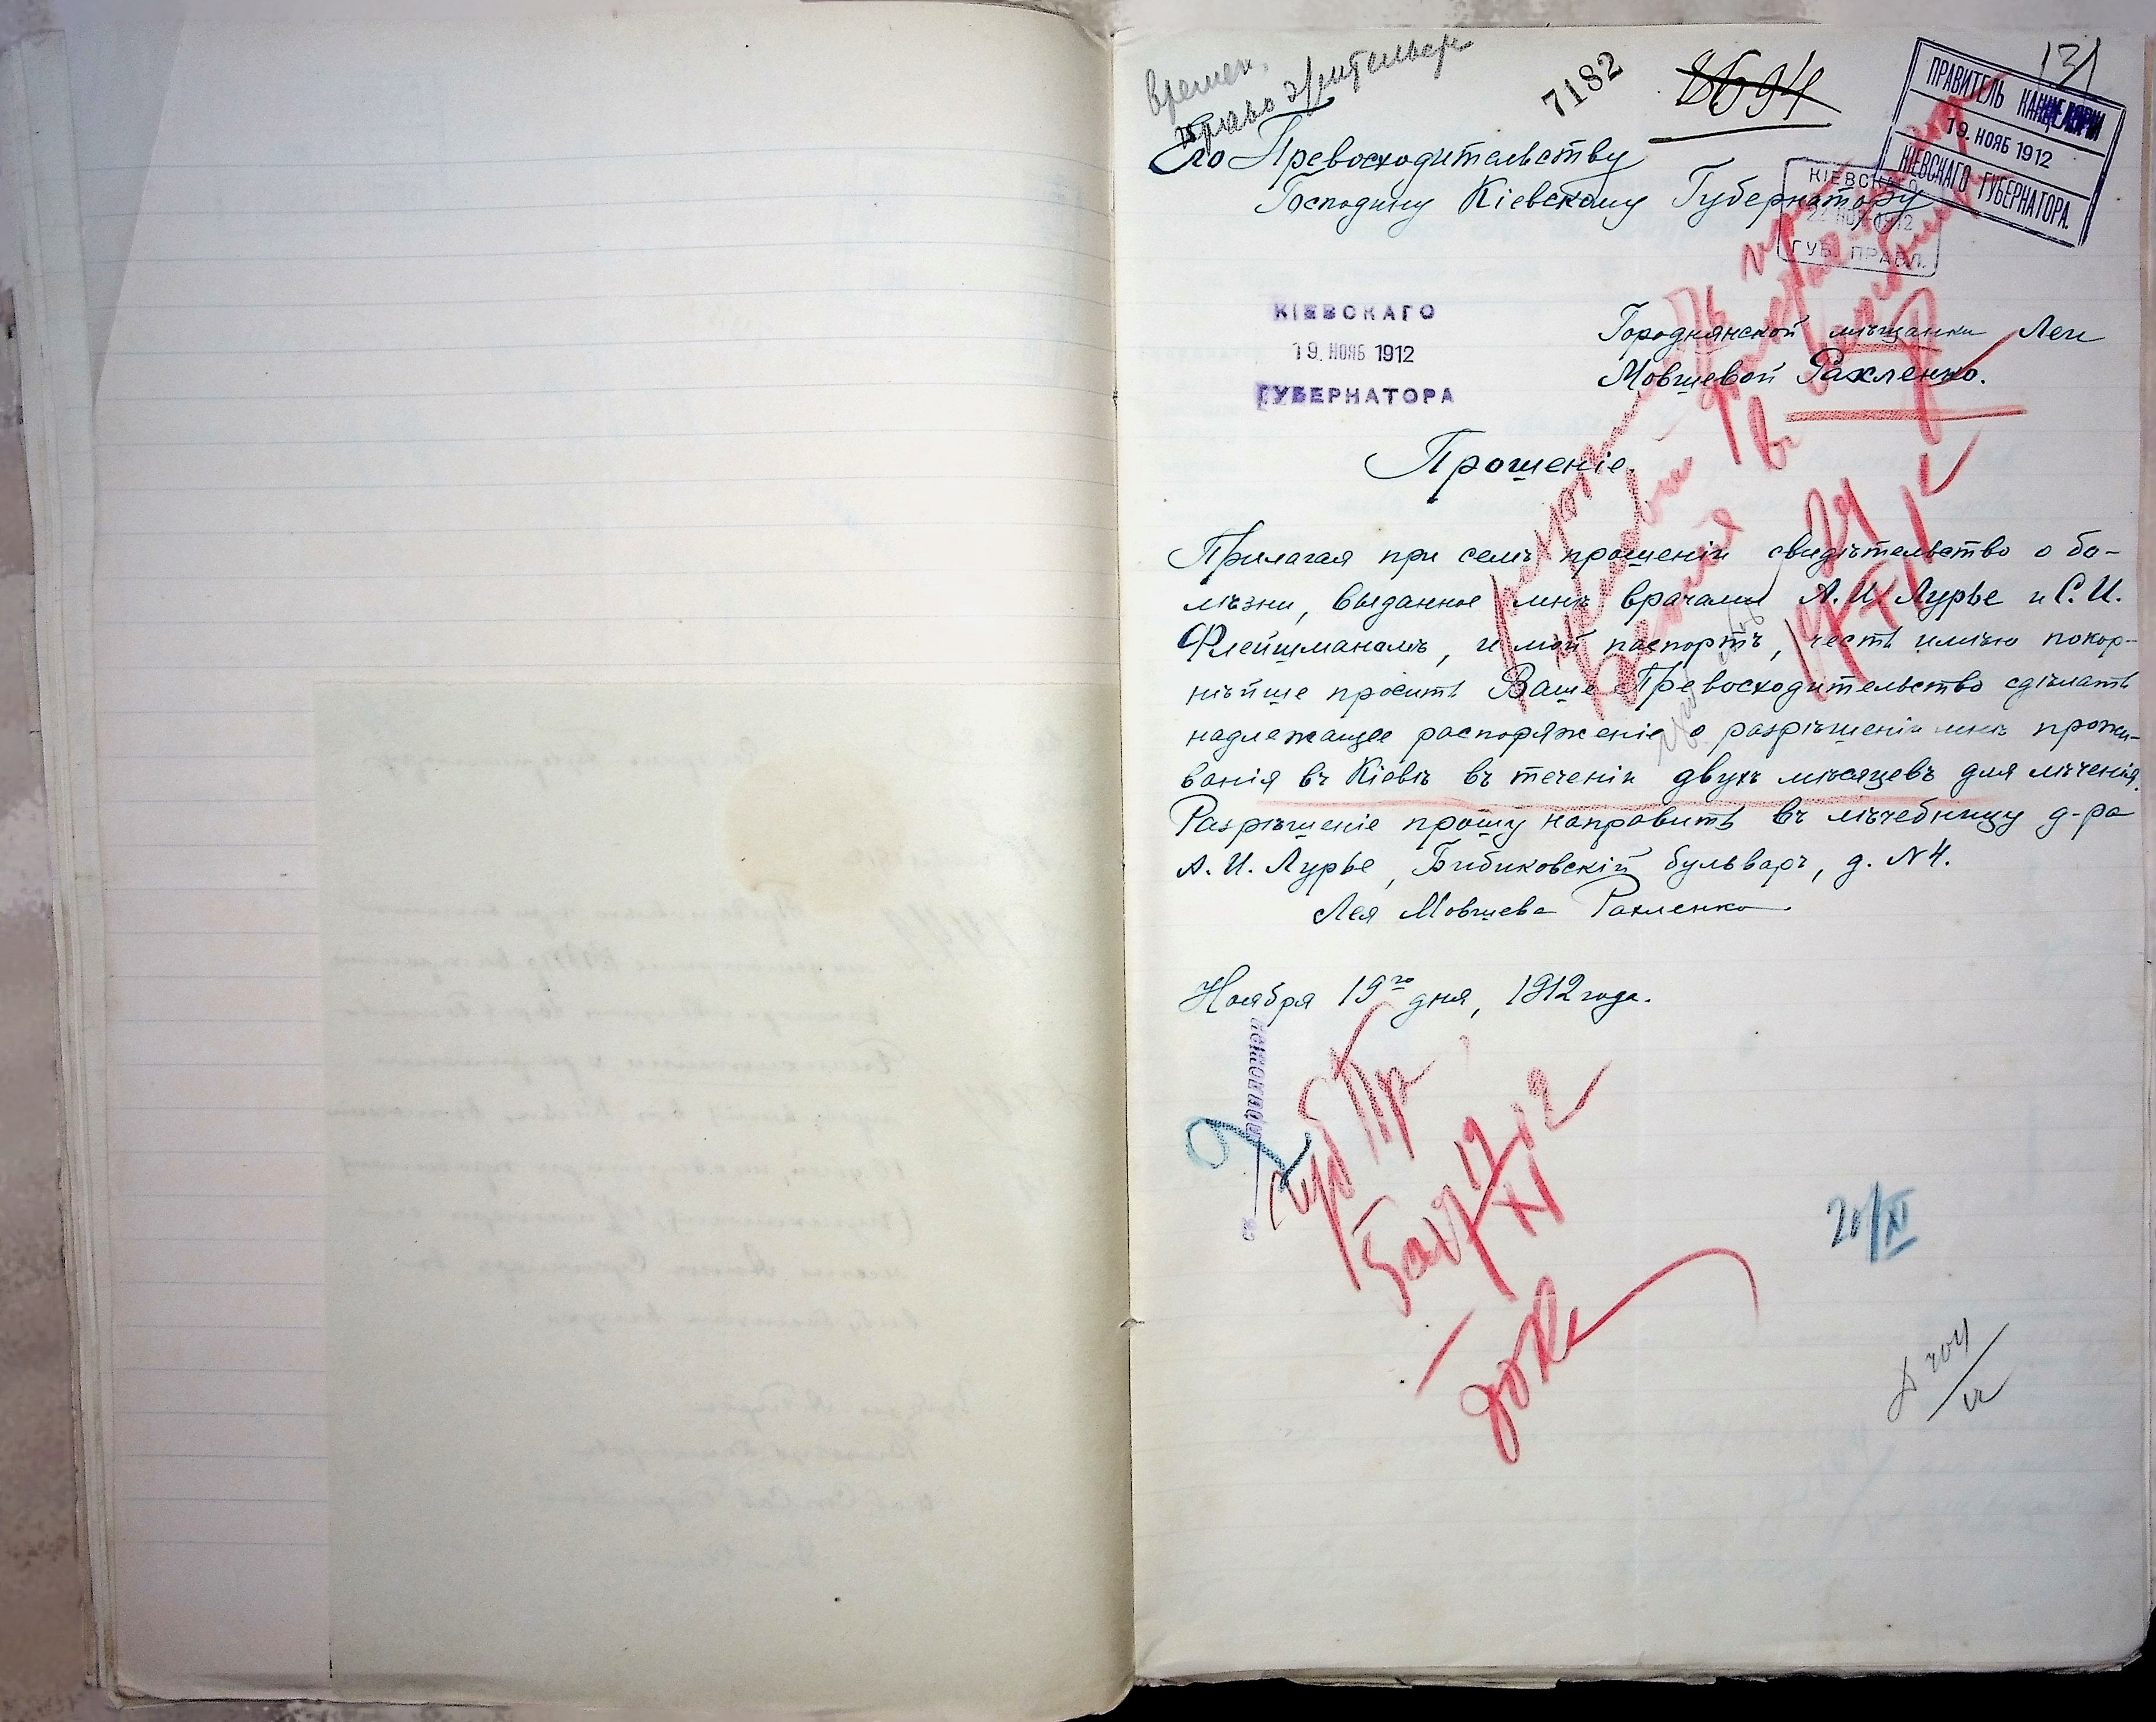 времен.
право жительст
7182
8694
131
ПРАВИТЕЛЬ КАНЦЕЛЯРІИ
19. НОЯБ 1912
КІЕВСКАГО ГУБЕРНАТОРА.
Его Превосходительству
Господину Кіевскому Губернатору
КІЕВСКАГО
22 НОЯ 1912
ГУБ. ПРАВЛ.
КІЕВСКАГО
19. НОЯБ 1912
ГУБЕРНАТОРА
Городнянской мѣщанки Леи
Мовшевой Рахленко.
Прошеніе.
Прилагая при семъ прошеніи свидѣтельство о бо-
лѣзни, выданное мнѣ врачами А. И. Лурье и С. И.
Флейшманомъ, и мой паспортъ, честь имѣю покор-
нѣйше просить Ваше Превосходительство сдѣлать
надлежащее распоряженіе о разрѣшеніи мнѣ прожи-
ванія въ Кіевѣ въ теченіи двухъ мѣсяцевъ для лѣченія.
Разрѣшеніе прошу направить въ лѣчебницу д-ра
А. И. Лурье, Бибиковскій бульваръ, д. N 4.
Лея Мовшева Рахленко.
Ноября 19го дня, 1912 года.
Губ Пр
19/XI 12
20/XI